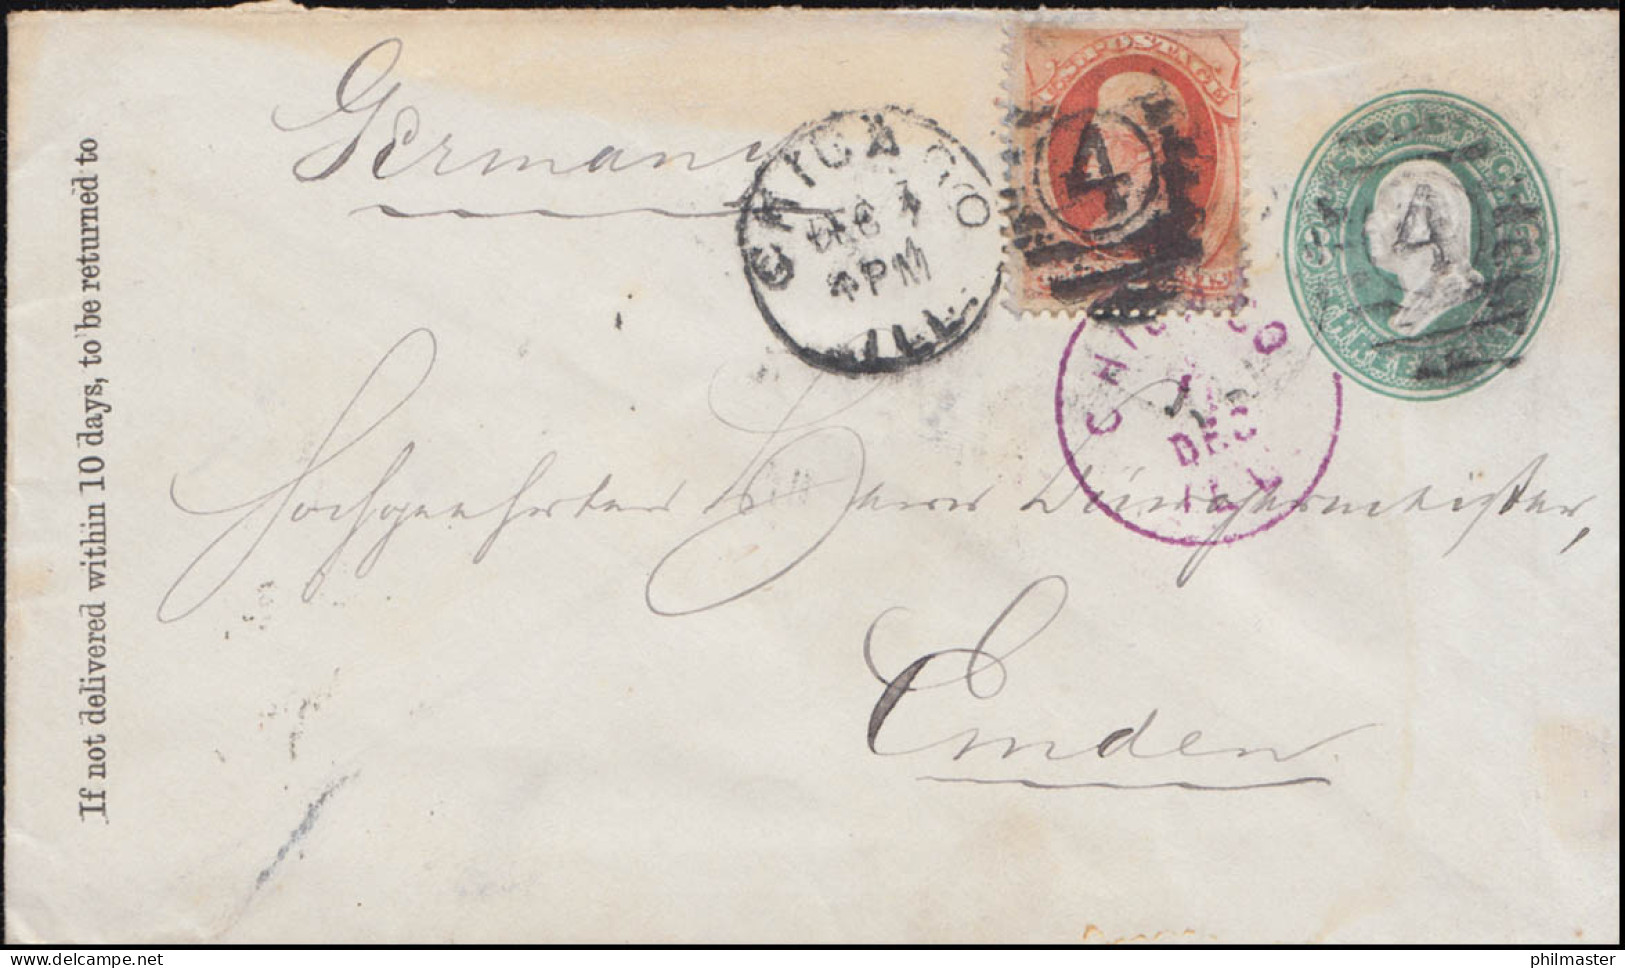 If not delivered within 10 days, to be returned to
Germany
CHICAGO
DEC 7
4 PM
ILL.
U.S. POSTAGE
4
U.S. POSTAGE
4
CHICAGO
DEC
ILL
Hochgeehrten Herrn Bürgermeister,
Emden.
philmaster